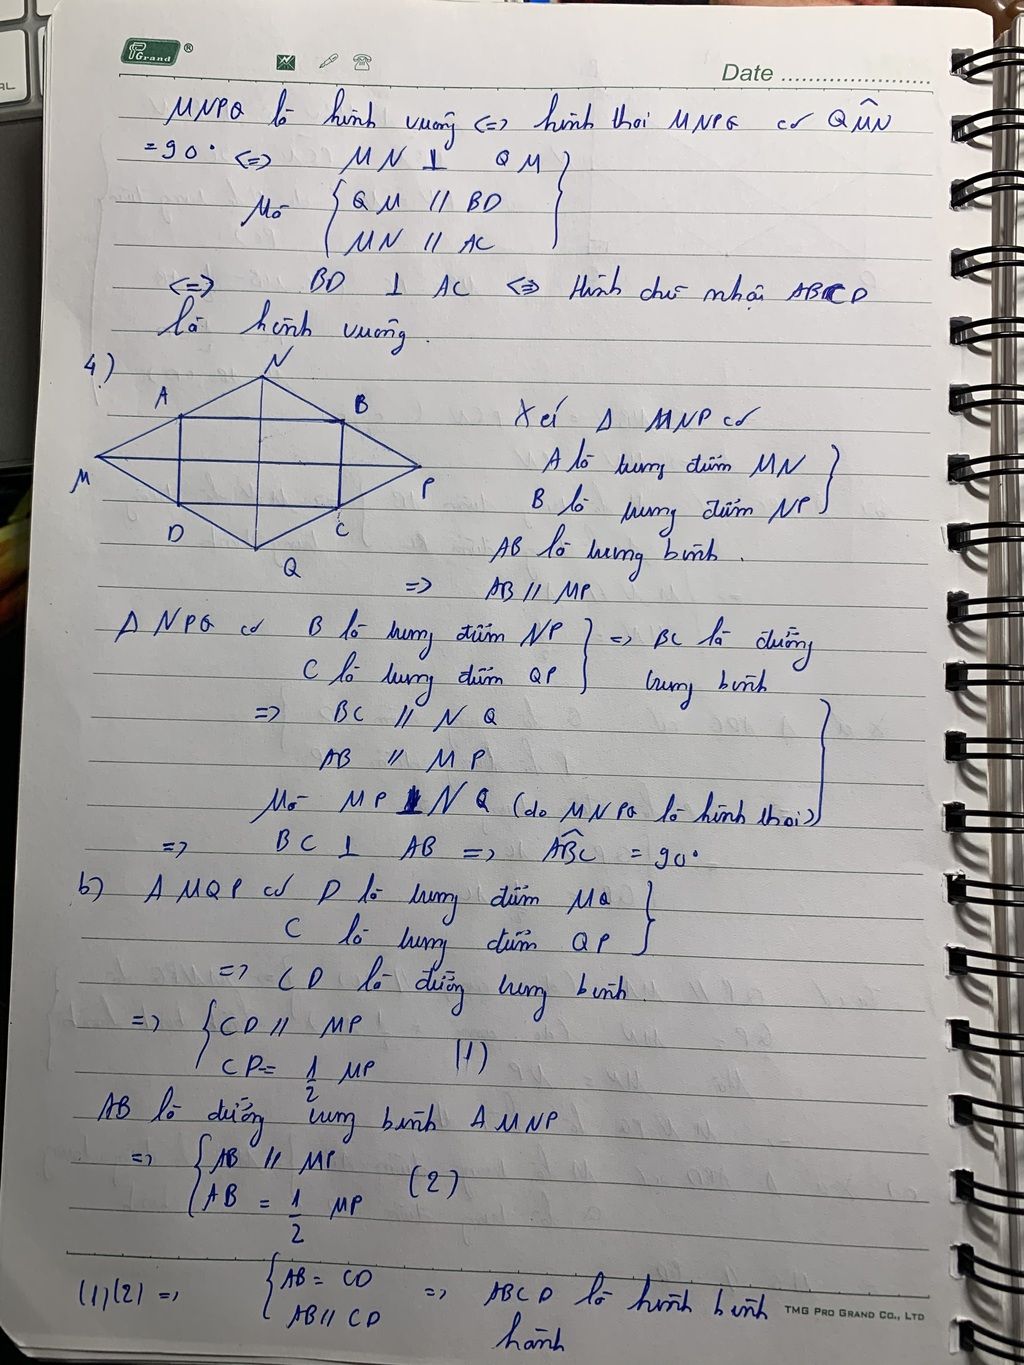 PGrand ®
Date
MNPQ là hình vuông <=> hình thoi MNPQ có QMN
= 90° <=> MN ⊥ QM
Mà { QM // BD
MN // AC
<=> BD ⊥ AC <=> Hình chữ nhật ABCD
là hình vuông.
4)
N
A B
M P
D C
Q
Xét Δ MNP có
A là trung điểm MN
B là trung điểm NP
AB là trung bình.
=> AB // MP
Δ NPQ có B là trung điểm NP } => BC là đường
C là trung điểm QP trung bình
=> BC // NQ
AB // MP
Mà MP ⊥ NQ (do MNPQ là hình thoi)
=> BC ⊥ AB => ABC = 90°
b) Δ MQP có D là trung điểm MQ
C là trung điểm QP
=> CD là đường trung bình.
=> { CD // MP
CD = 1/2 MP (1)
AB là đường trung bình Δ MNP
=> { AB // MP
AB = 1/2 MP (2)
(1)(2) => { AB = CD
AB // CD => ABCD là hình bình
hành
TMG PRO GRAND CO., LTD